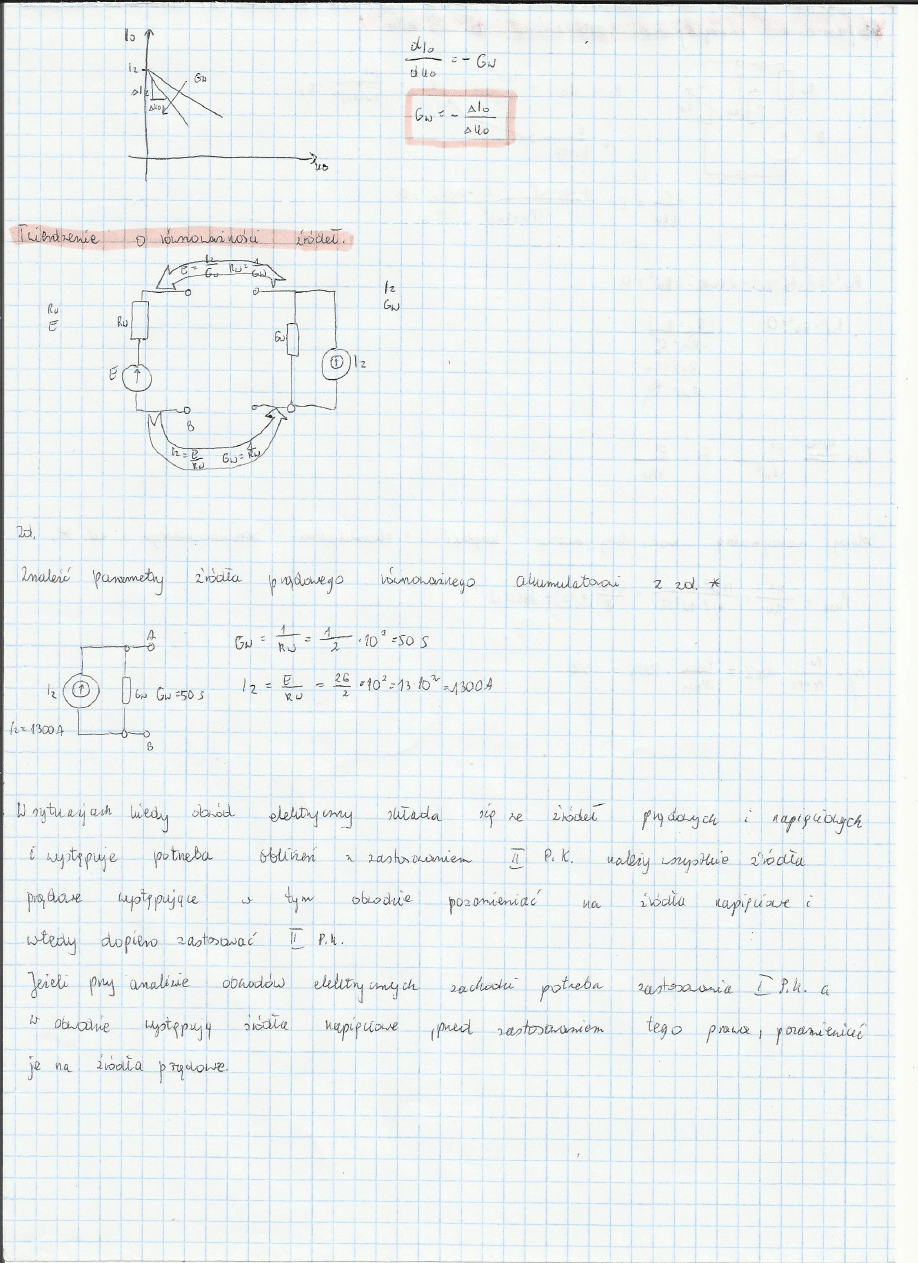 I0
Iz
Gw
ΔIz
Δu0
u0
dI0/du0 = - Gw
Gw = - ΔI0/Δu0
Twierdzenie o równoważności źródeł.
E = Iz/Gw Rw = 1/Gw
Rw
E
Rw
E
B
Gw
Iz
Iz
Gw
Iz = E/Rw Gw = 1/Rw
Zad.
Znaleść parametry źródła prądowego równoważnego akumulatorowi z zad. *
A
Iz
Gw Gw=50 S
Iz = 1300A
B
Gw = 1/Rw = 1/2 · 10² = 50 S
Iz = E/Rw = 26/2 · 10² = 13 · 10² = 1300A
W sytuacjach kiedy obwód elektryczny składa się ze źródeł prądowych i napięciowych
i występuje potrzeba obliczeń z zastosowaniem II P.K. należy wszystkie źródła
prądowe występujące w tym obwodzie pozamieniać na źródła napięciowe i
wtedy dopiero zastosować II P.K.
Jeżeli przy analizie obwodów elektrycznych zachodzi potrzeba zastosowania I P.K. a
w obwodzie występują źródła napięciowe, przed zastosowaniem tego prawa, pozamieniać
je na źródła prądowe.